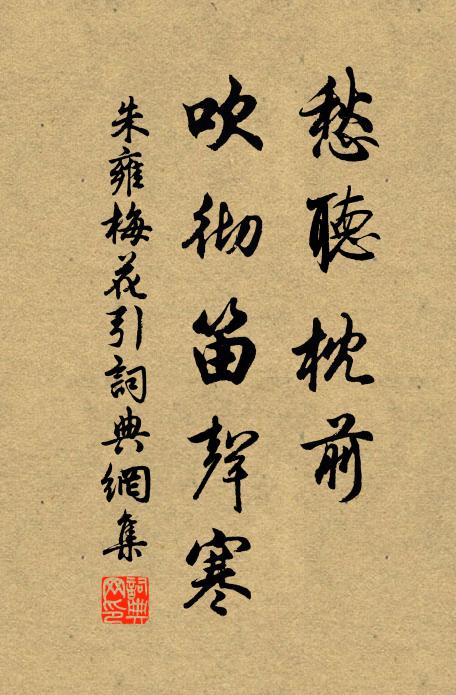 愁聽枕前
吹彻笛聲寒
朱雍梅花引詞典網集
詞典
网印